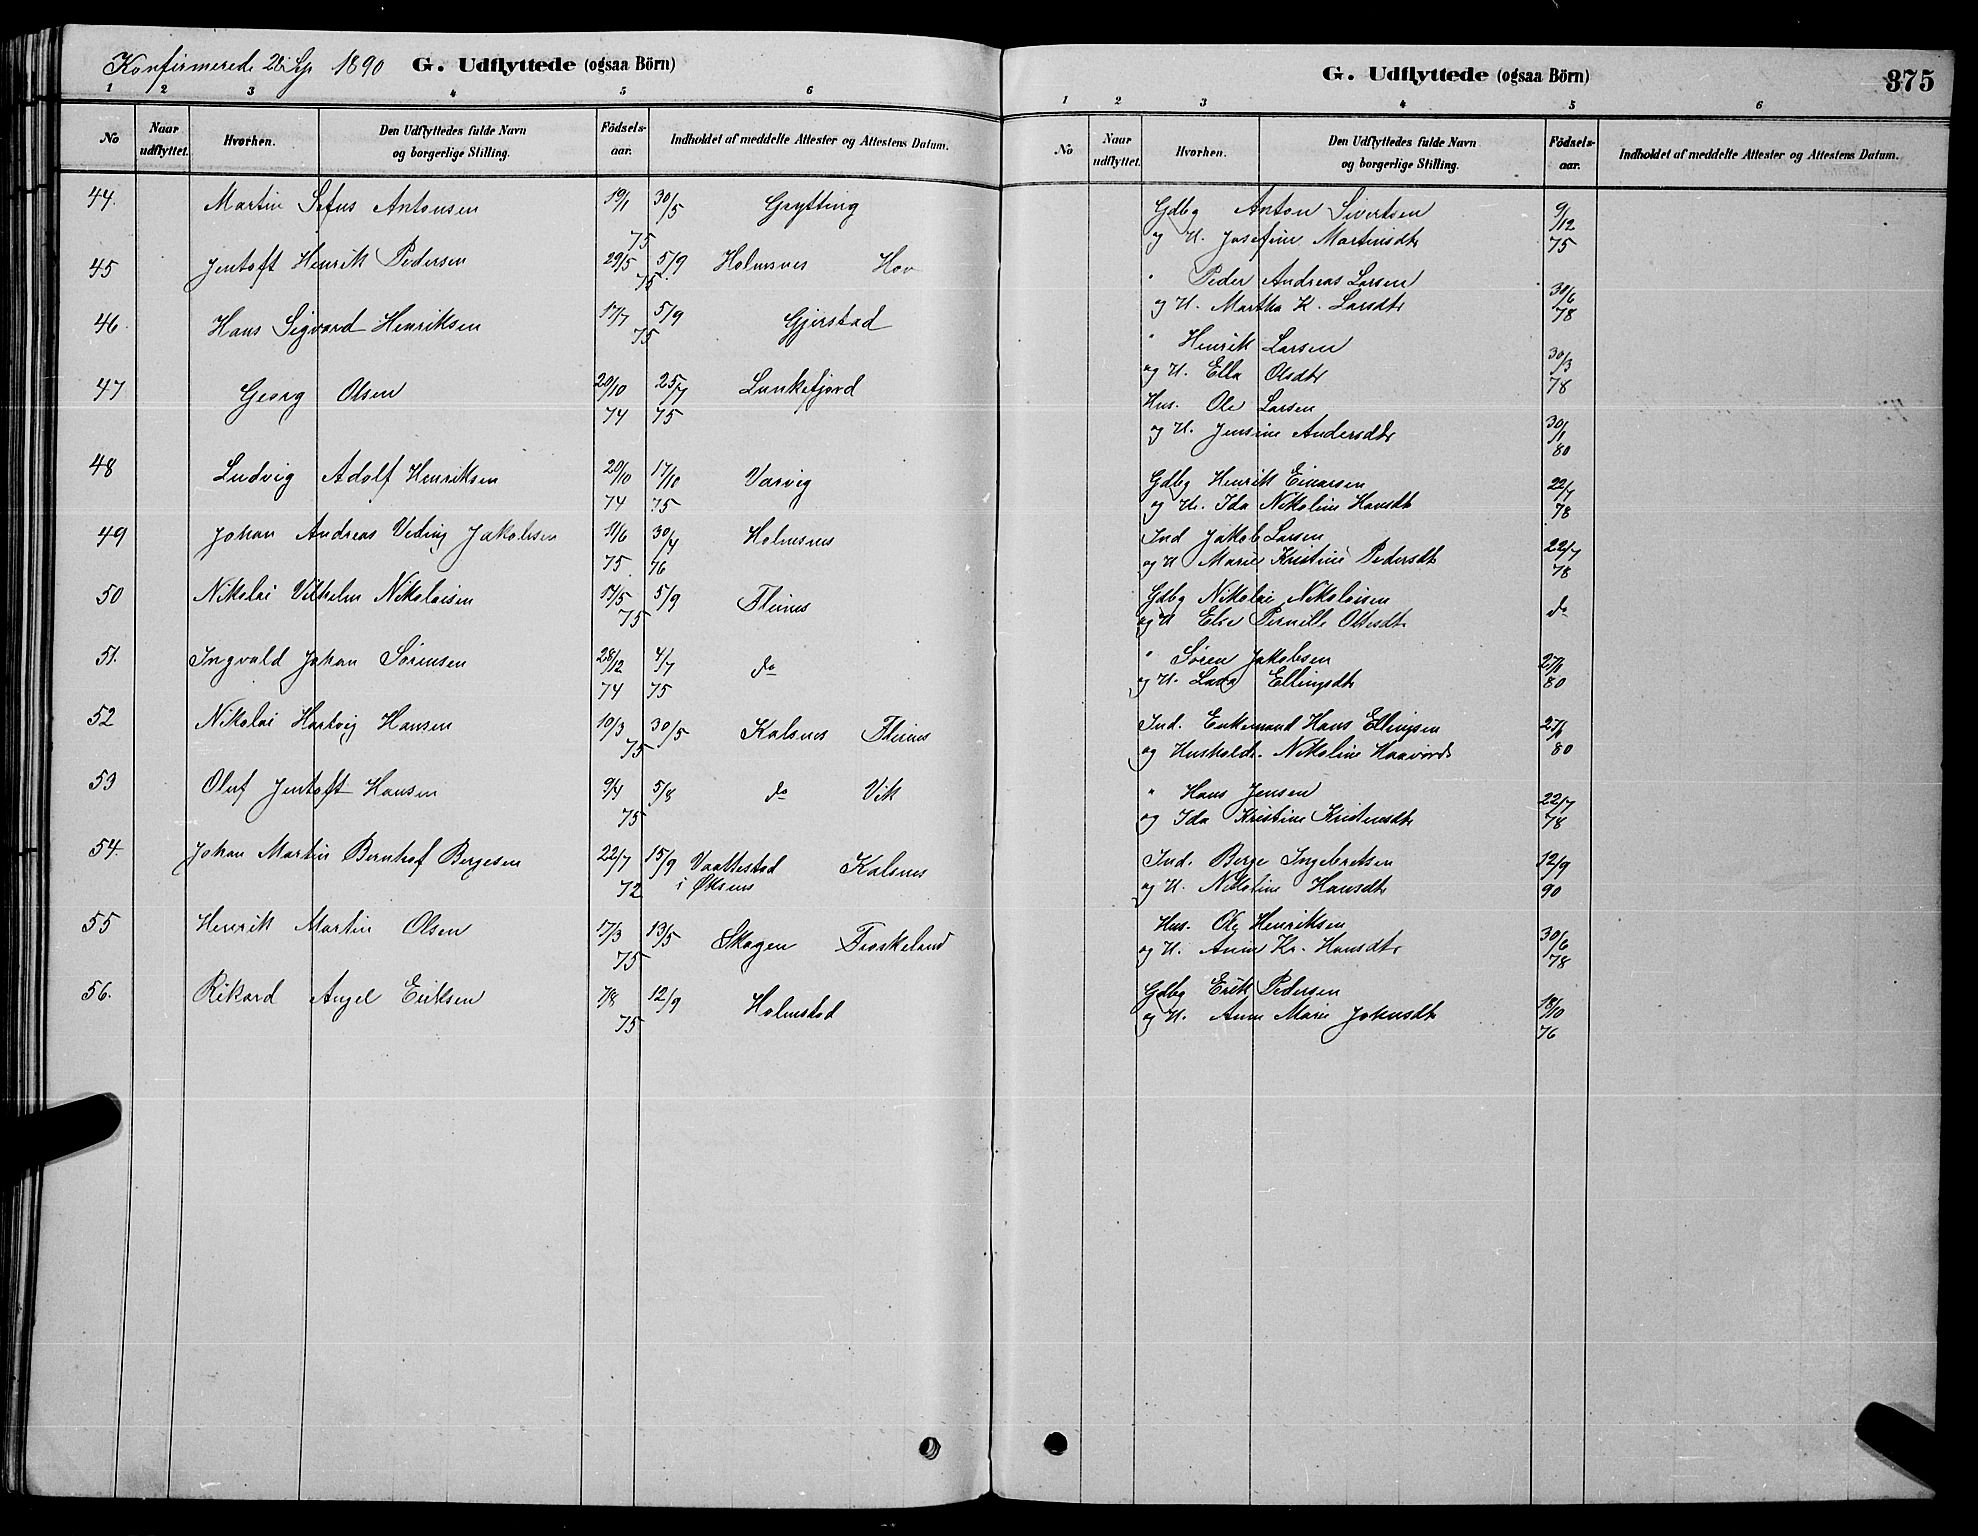 Konfirmerede 28 Sp 1890
G. Udflyttede (ogsaa Börn)
1 2 3 4 5 6
No
Naar udflyttet.
Hvorhen.
Den Udflyttedes fulde Navn
og borgerlige Stilling.
Födsels-
aar.
Indholdet af meddelte Attester og Attestens Datum.
44. Martin Sefus Antonsen 19/1 75 30/5 Grytting
45 Jentoft Henrik Pedersen 29/5 75. 5/9 Holmsnes Hov
46. Hans Sigvard Henriksen 17/7 75 5/9 Gjerstad
47 Georg Olsen 20/10 74 25/7 75 Lunkefjord
48 Ludvig Adolf Henriksen 20/10 74 17/10 75 Varvig
49 Johan Andreas Veding Jakobsen 11/6 75. 30/4 76 Holmsnes
50 Nikolai Vilhelm Nikolaisen 14/5 75 5/9 Fleines
51. Ingvald Johan Sörensen 28/12 74 4/7 75 do
52 Nikolai Hartvig Hansen 10/3 75 30/5 Kalsnes Fleines
53 Oluf Jentoft Hansen 9/4 75 5/8 do Vik
54. Johan Martin Bernhof Bergesen 22/7 72 15/9 Kalsnes
i Öksnes
55 Henrik Martin Olsen 17/3 75 13/5 Skagen Froskeland
56. Rikard Angel Eriksen 7/8 75 12/9 Holmstad
G. Udflyttede (ogsaa Börn)
375
1 2 3 4 5 6
No
Naar udflyttet.
Hvorhen.
Den Udflyttedes fulde Navn
og borgerlige Stilling.
Födsels-
aar.
Indholdet af meddelte Attester og Attestens Datum.
Gdbg Anton Sivertsen 9/12
og H. Josefine Martinsdtr 75
" Peder Andreas Larsen 30/6
og H. Martha K. Larsdtr 78
" Henrik Larsen 30/3
og H. Ella Olsdtr 78
Hus. Ole Larsen
og H. Jensine Andersdtr 30/1 80
Gdbg Henrik Einarsen 22/7
og H. Ida Nikoline Hansdtr 78
Ind Jakob Larsen 22/7
og H Marie Kristine Pedersdtr 78
Gdbg Nikolai Nikolaisen do
og H Elise Pernille Ottesdtr
" Sören Jakobsen 27/1
og H. Ellingsdtr 80
Ind. Enkemand Hans Ellingsen 27/1
og Husholdr. Nikoline Haavords 80
" Hans Jensen 22/7
og Ida Kristine 78
Ind. Berge Ingebretsen 12/9
og H. Nikoline Hansdtr 90
Hus. Ole Henriksen 30/6
og H. Anne Kr. Hansdtr 78
Gdbg Erik Pedersen 18/10
og H. Anne Marie Johnsdtr 76